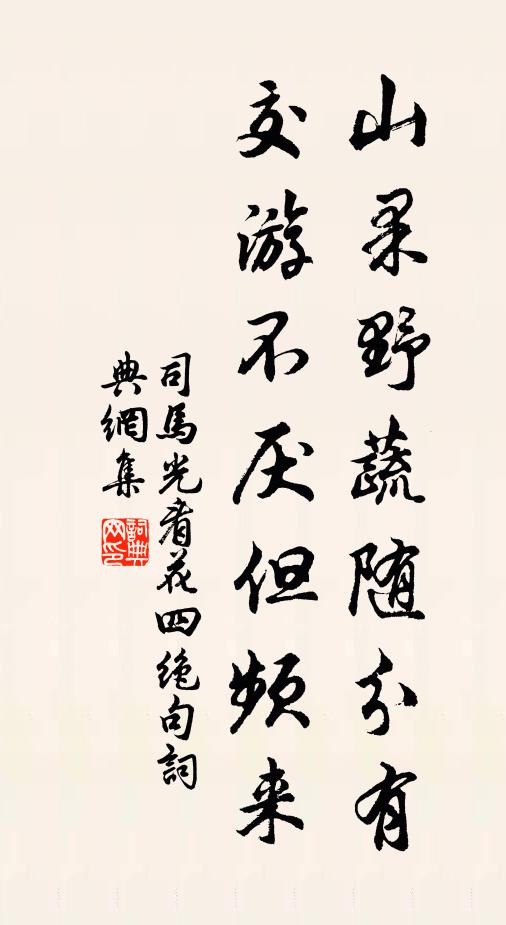 山果野蔬随分有
交游不厌但頻来
司馬光看花四绝句詞
典網集
詞典
网印